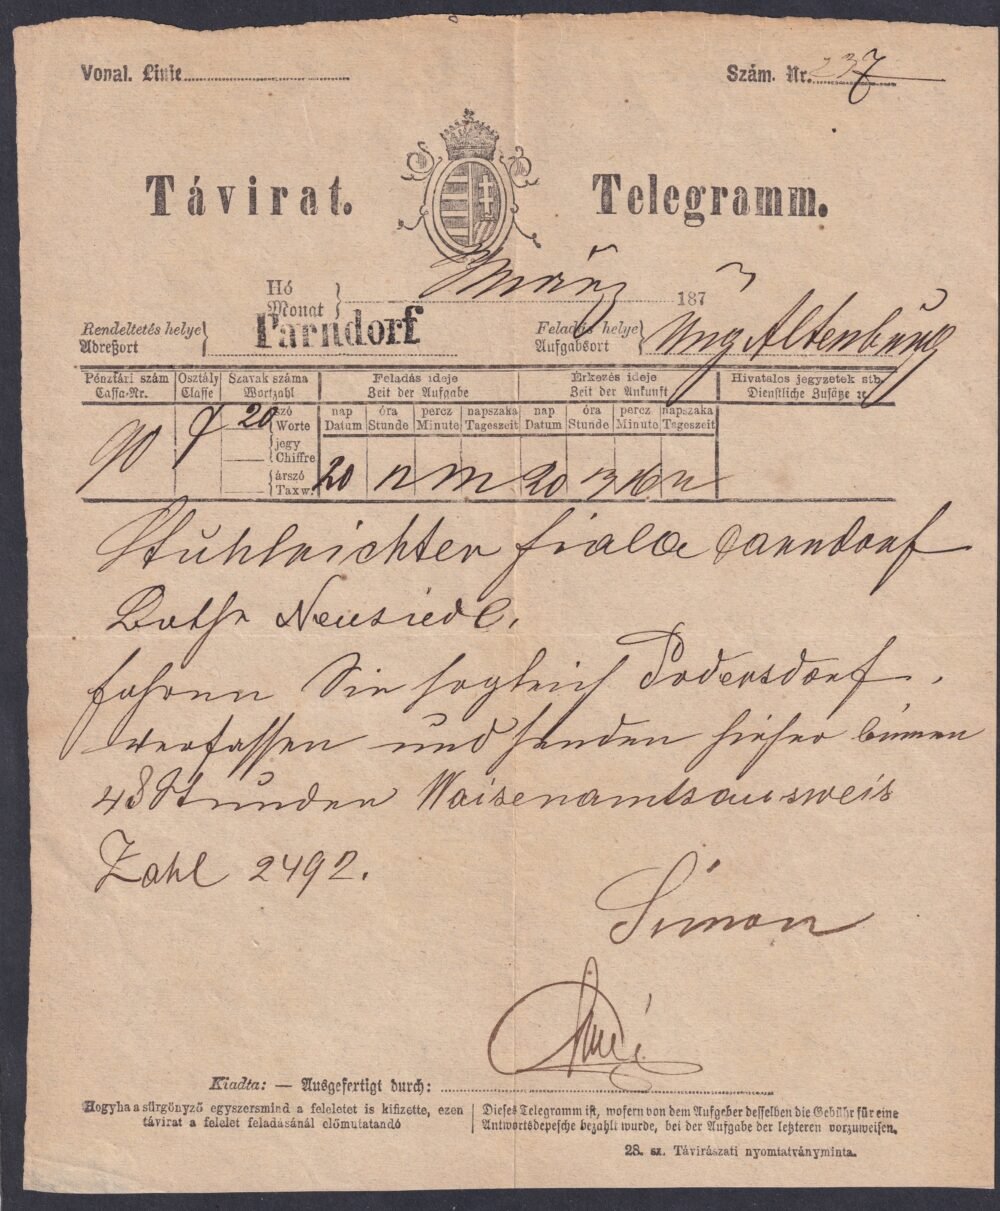 Vonal. Linie
Szám. Nr. 237
Távirat. Telegramm.
Hó
Monat
März
187
Rendeltetés helye
Adreßort
Parndorf
Feladás helye
Aufgabsort
Ung Altenburg
Pénztári szám Osztály Szavak száma Feladás ideje Érkezés ideje Hivatalos jegyzetek stb.
Cassa-Nr. Classe Wortzahl Zeit der Aufgabe Zeit der Ankunft Dienstliche Zusätze ꝛc
nap óra percz napszaka nap óra percz napszaka
Datum Stunde Minute Tageszeit Datum Stunde Minute Tageszeit
90
20 szó
Worte
jegy
Chiffre
árszó
Taxw.
20 20
Stuhlrichter Fiala Parndorf
Bothe Neusiedl.
fahren Sie sogleich Podersdorf.
verfassen und senden hieher binnen
48 Stunden Waisenamtsausweis
Zahl 2492.
Simon
Kiadta: — Ausgefertigt durch:
Hogyha a sürgönyző egyszersmind a feleletet is kifizette, ezen
távirat a felelet feladásánál előmutatandó
Dieses Telegramm ist, wofern von dem Aufgeber desselben die Gebühr für eine
Antwortsdepesche bezahlt wurde, bei der Aufgabe der letzteren vorzuweisen.
28. sz. Távirászati nyomtatványminta.